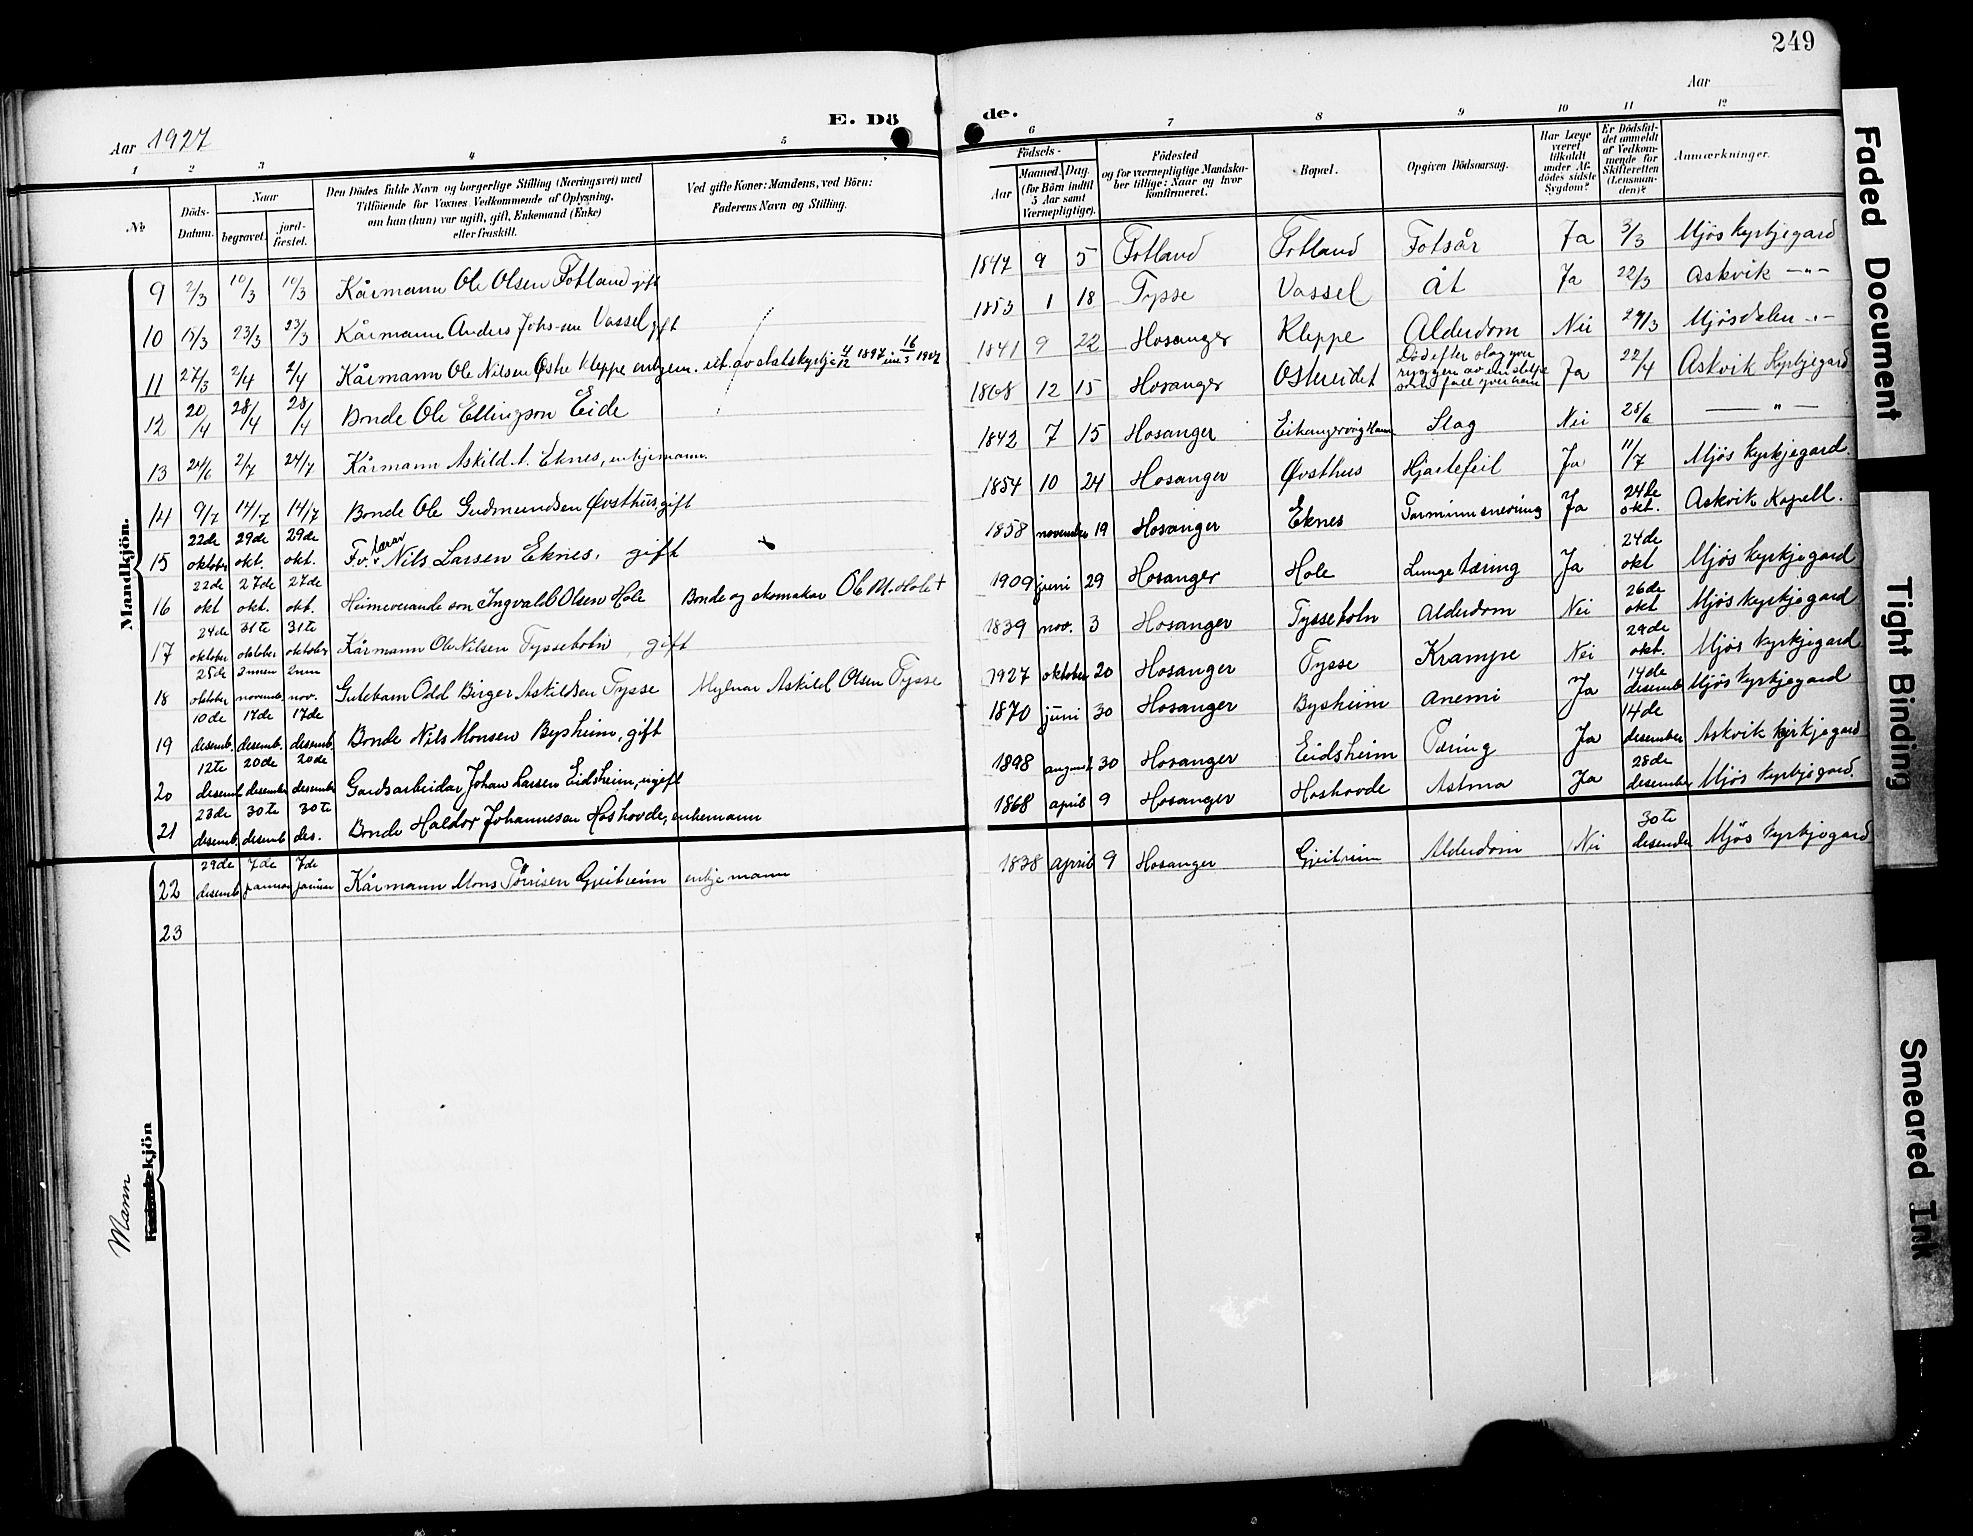 249
Aar 1927
E. Dö
de.
Aar
1 2 3 4 5 6 7 8 9 10 11 12
No
Döds-Datum.
Naar
begravet.
jord-fæstet.
Den Dödes fulde Navn og borgerlige Stilling (Næringsvei) med
Tilföiende for Voxnes Vedkommende af Oplysning,
om han (hun) var ugift, gift, Enkemand (Enke)
eller fraskilt.
Ved gifte Koner: Mandens, ved Börn:
Faderens Navn og Stilling.
Födsels-
Aar
Maaned. Dag.
(for Börn indtil
5 Aar samt
Værnepligtige).
Födested
og for værnepligtige Mandska-
ber tillige: Naar og hvor
konfirmeret.
Bopæl.
Opgiven Dödsaarsag.
Har Læge
været
tilkaldt
under Af-
dødes sidste
Sygdom?
Er Dödsfal-
det anmeldt
af Vedkom-
mende for
Skifteretten
(Lensman-
den)?
Anmærkninger.
Mandkjön.
9 2/3 10/3 10/3 Kårmann Ole Olsen Fotland gift 1847 9 5 Fotland Fotland Fotsår Ja 3/3 Mjøs kyrkjegard
10 15/3 23/3 23/3 Kårmann Anders Johs-sen Vassel gift 1853 1 18 Tysse Vassel Åt Ja 22/3 Askvik -"-
11 27/3 2/4 2/4 Kårmann Ole Nilsen Østre Kleppe enkjem. ut. av statskyrkja 4/12 1897 inn 16/3 1902 1841 9 22 Hosanger Kleppe Alderdom Nei 29/3 Mjösdalen -"-
12 20/4 28/4 28/4 Bonde Ole Ellingson Eide 1868 12 15 Hosanger Ostereidet Død efter slag yver ryggen av ein stolpe som fall yver han Ja 22/4 Askvik Kyrkjegard
13 24/6 2/7 24/7 Kårmann Askild A. Eknes, enkjemann. 1842 7 15 Hosanger Eikangervåg Hamn Slag Nei 28/6 — " —
14 9/7 14/7 14/7 Bonde Ole Gudmundsen Øvsthus, gift 1854 10 24 Hosanger Øvsthus Hjartefeil Ja 11/7 Mjös kyrkjegard.
15 22de oktober 29de okt. 29de okt. F.v. lærar Nils Larsen Eknes, gift 1858 november 19 Hosanger Eknes Tarminnsnering Ja 24de okt. Askvik Kapell.
16 22de okt 27de okt. 27de okt. Heimeverande son Ingvald Olsen Hole Bonde og skomakar Ole M. Hole + 1909 juni 29 Hosanger Hole Lungetæring Ja 24de okt Mjøs kyrkjegard
17 24de oktober 31te oktober 31te oktober Kårmann Ole Nilsen Tysseholn, gift 1839 nov. 3 Hosanger Tysseholn Alderdom Nei 26de okt Mjøs kyrkjegard
18 28de oktober 2nnen november 2nnn nov. Gutebarn Odd Birger Askildsen Tysse Mylnar Askild Olsen Tysse 1927 oktober 20 Hosanger Tysse Krampe Nei 29de okt. Mjøs kyrkjegard
19 10de desemb. 17de desemb. 17de desemb. Bonde Nils Monsen Bysheim, gift 1870 juni 30 Hosanger Bysheim Anemi Ja 14de desember Mjøs kyrkjegard
20 12te desemb 20de desember 20de desember Gardsarbeidar Johan Larsen Eidsheim, ugift 1898 august 30 Hosanger Eidsheim Tæring Ja 14de desember Askvik kyrkjegard
21 23de desemb. 30te desemb 30te des. Bonde Haldor Johannesen Hoshovde, enkemann 1868 april 9 Hosanger Hoshovde Astma Ja 28de desember Mjøs kyrkjegard.
22 29de desemb 7de januar 7de januar Kårmann Mons Tørrisen Gjeitrein enkjemann 1838 april 9 Hosanger Gjeitrein Alderdom Nei 30te desember Mjøs kyrkjegard
23
Mann
Kvindekjön
Faded Document
Tight Binding
Smeared Ink